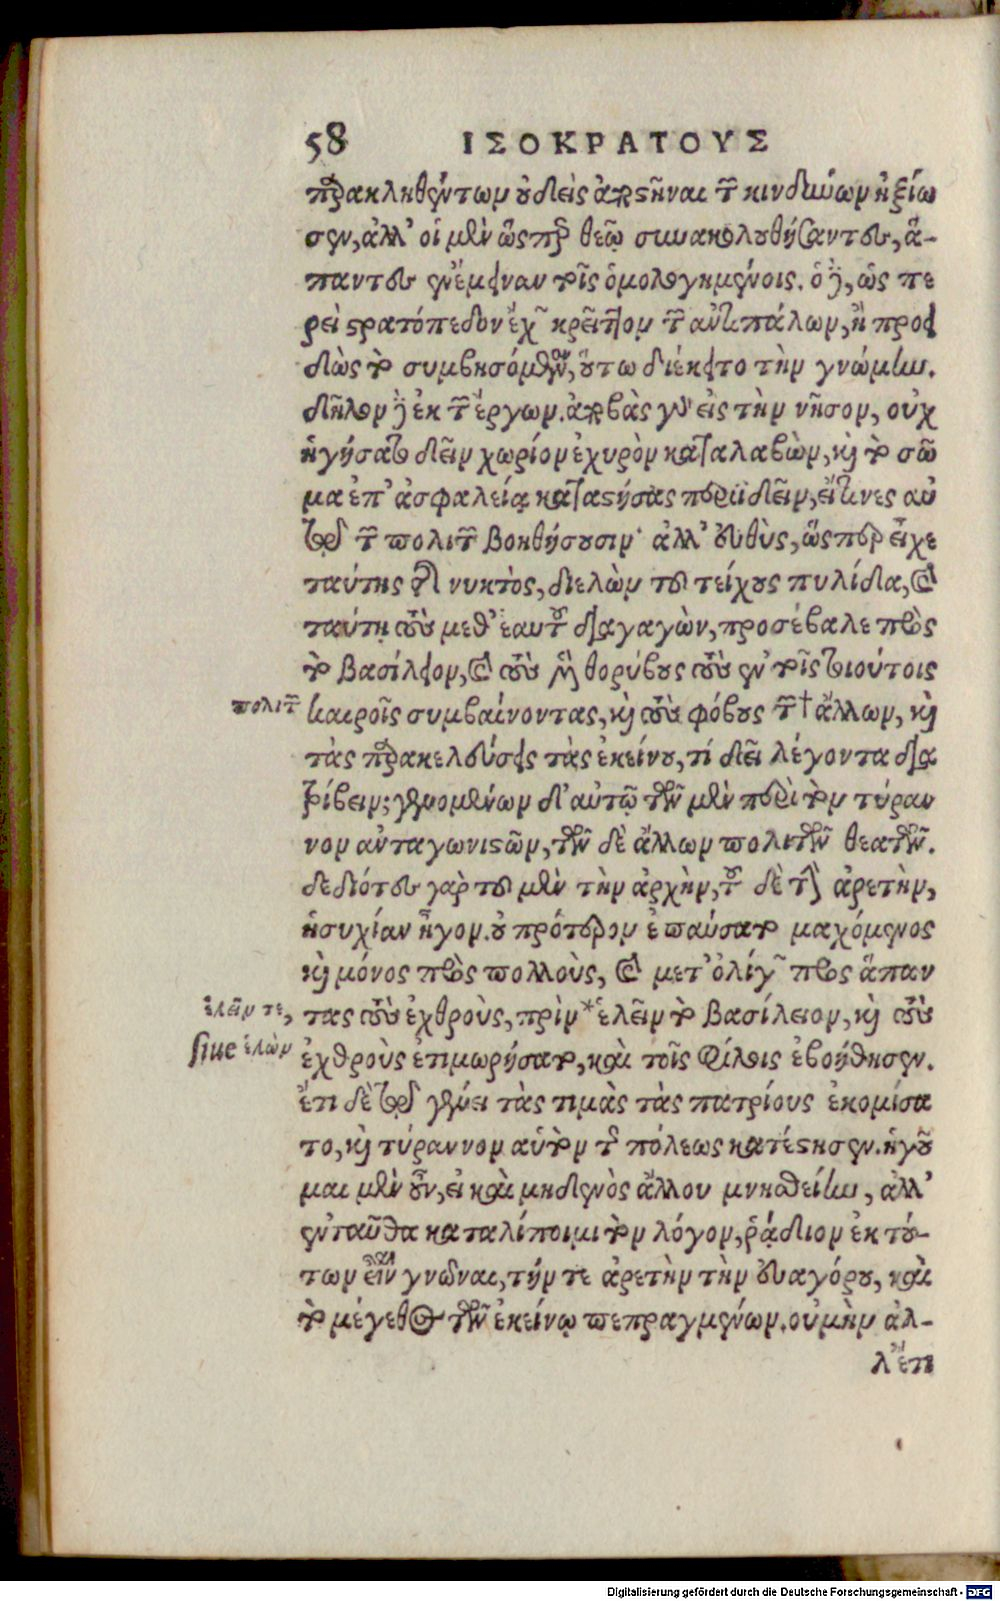 58 ΙΣΟΚΡΑΤΟΥΣ
παρακληθέντων οὐδεὶς ἀποστῆναι τῶν κινδύνων ἠξίω
σεν, ἀλλ' οἱ μὲν ὥσπερ θεῷ συνακολουθήσαντες, ἅ-
παντες ἐνέμειναν τοῖς ὁμολογημένοις. ὁ δὲ, ὡς πε
ρεὶ στρατόπεδον ἔχων κρεῖττον τῶν ἀντιπάλων, ἢ προει
δὼς τὸ συμβησόμενον, οὕτω διέκειτο τὴν γνώμην.
δῆλον δὲ ἐκ τῶν ἔργων. ἀποβὰς γὰρ εἰς τὴν νῆσον, οὐχ
ἡγήσατο δεῖν χωρίον ἐχυρὸν καταλαβὼν, καὶ τὸ σῶ
μα ἐπ' ἀσφαλείᾳ καταστήσας περιιδεῖν, εἴ τινες αὐ
τῷ τῶν πολιτῶν βοηθήσουσιν· ἀλλ' εὐθὺς, ὥσπερ εἶχε
ταύτης τῆς νυκτὸς, διελὼν τοῦ τείχους πυλίδα, καὶ
ταύτῃ τοὺς μεθ' ἑαυτοῦ διαγαγὼν, προσέβαλε πρὸς
τὸ βασίλειον, καὶ τοὺς μὲν θορύβους τοὺς ἐν τοῖς τοιούτοις
πολιτῶν
καιροῖς συμβαίνοντας, καὶ τοὺς φόβους τῶν † ἄλλων, καὶ
τὰς παρακελεύσεις τὰς ἐκείνου, τί δεῖ λέγοντα δια
τρίβειν; γενομένων δ' αὐτῷ τῶν μὲν περὶ τὸν τύραν
νον ἀνταγωνιστῶν, τῶν δὲ ἄλλων πολιτῶν θεατῶν.
δεδιότες γὰρ τοῦ μὲν τὴν ἀρχὴν, τοῦ δὲ τὴν ἀρετὴν,
ἡσυχίαν ἦγον. οὐ πρότερον ἐπαύσατο μαχόμενος
καὶ μόνος πρὸς πολλοὺς, καὶ μετ' ὀλίγων πρὸς ἅπαν
ἑλεῖν τε,
τας τοὺς ἐχθροὺς, πρὶν * ἑλεῖν τὸ βασίλειον, καὶ τοὺς
siue ἑλὼν
ἐχθροὺς ἐτιμωρήσατο, καὶ τοῖς φίλοις ἐβοήθησεν.
ἔτι δὲ τῷ γένει τὰς τιμὰς τὰς πατρίους ἐκομίσα
το, καὶ τύραννον αὑτὸν τῆς πόλεως κατέστησεν. ἡγοῦ
μαι μὲν οὖν, εἰ καὶ μηδενὸς ἄλλου μνησθείην, ἀλλ'
ἐνταῦθα καταλίποιμι τὸν λόγον, ῥᾴδιον ἐκ τού-
των εἶναι γνῶναι, τήν τε ἀρετὴν τὴν Εὐαγόρου, καὶ
τὸ μέγεθος τῶν ἐκείνῳ πεπραγμένων. οὐ μὴν ἀλ-
λ' ἔτι
Digitalisierung gefördert durch die Deutsche Forschungsgemeinschaft - DFG